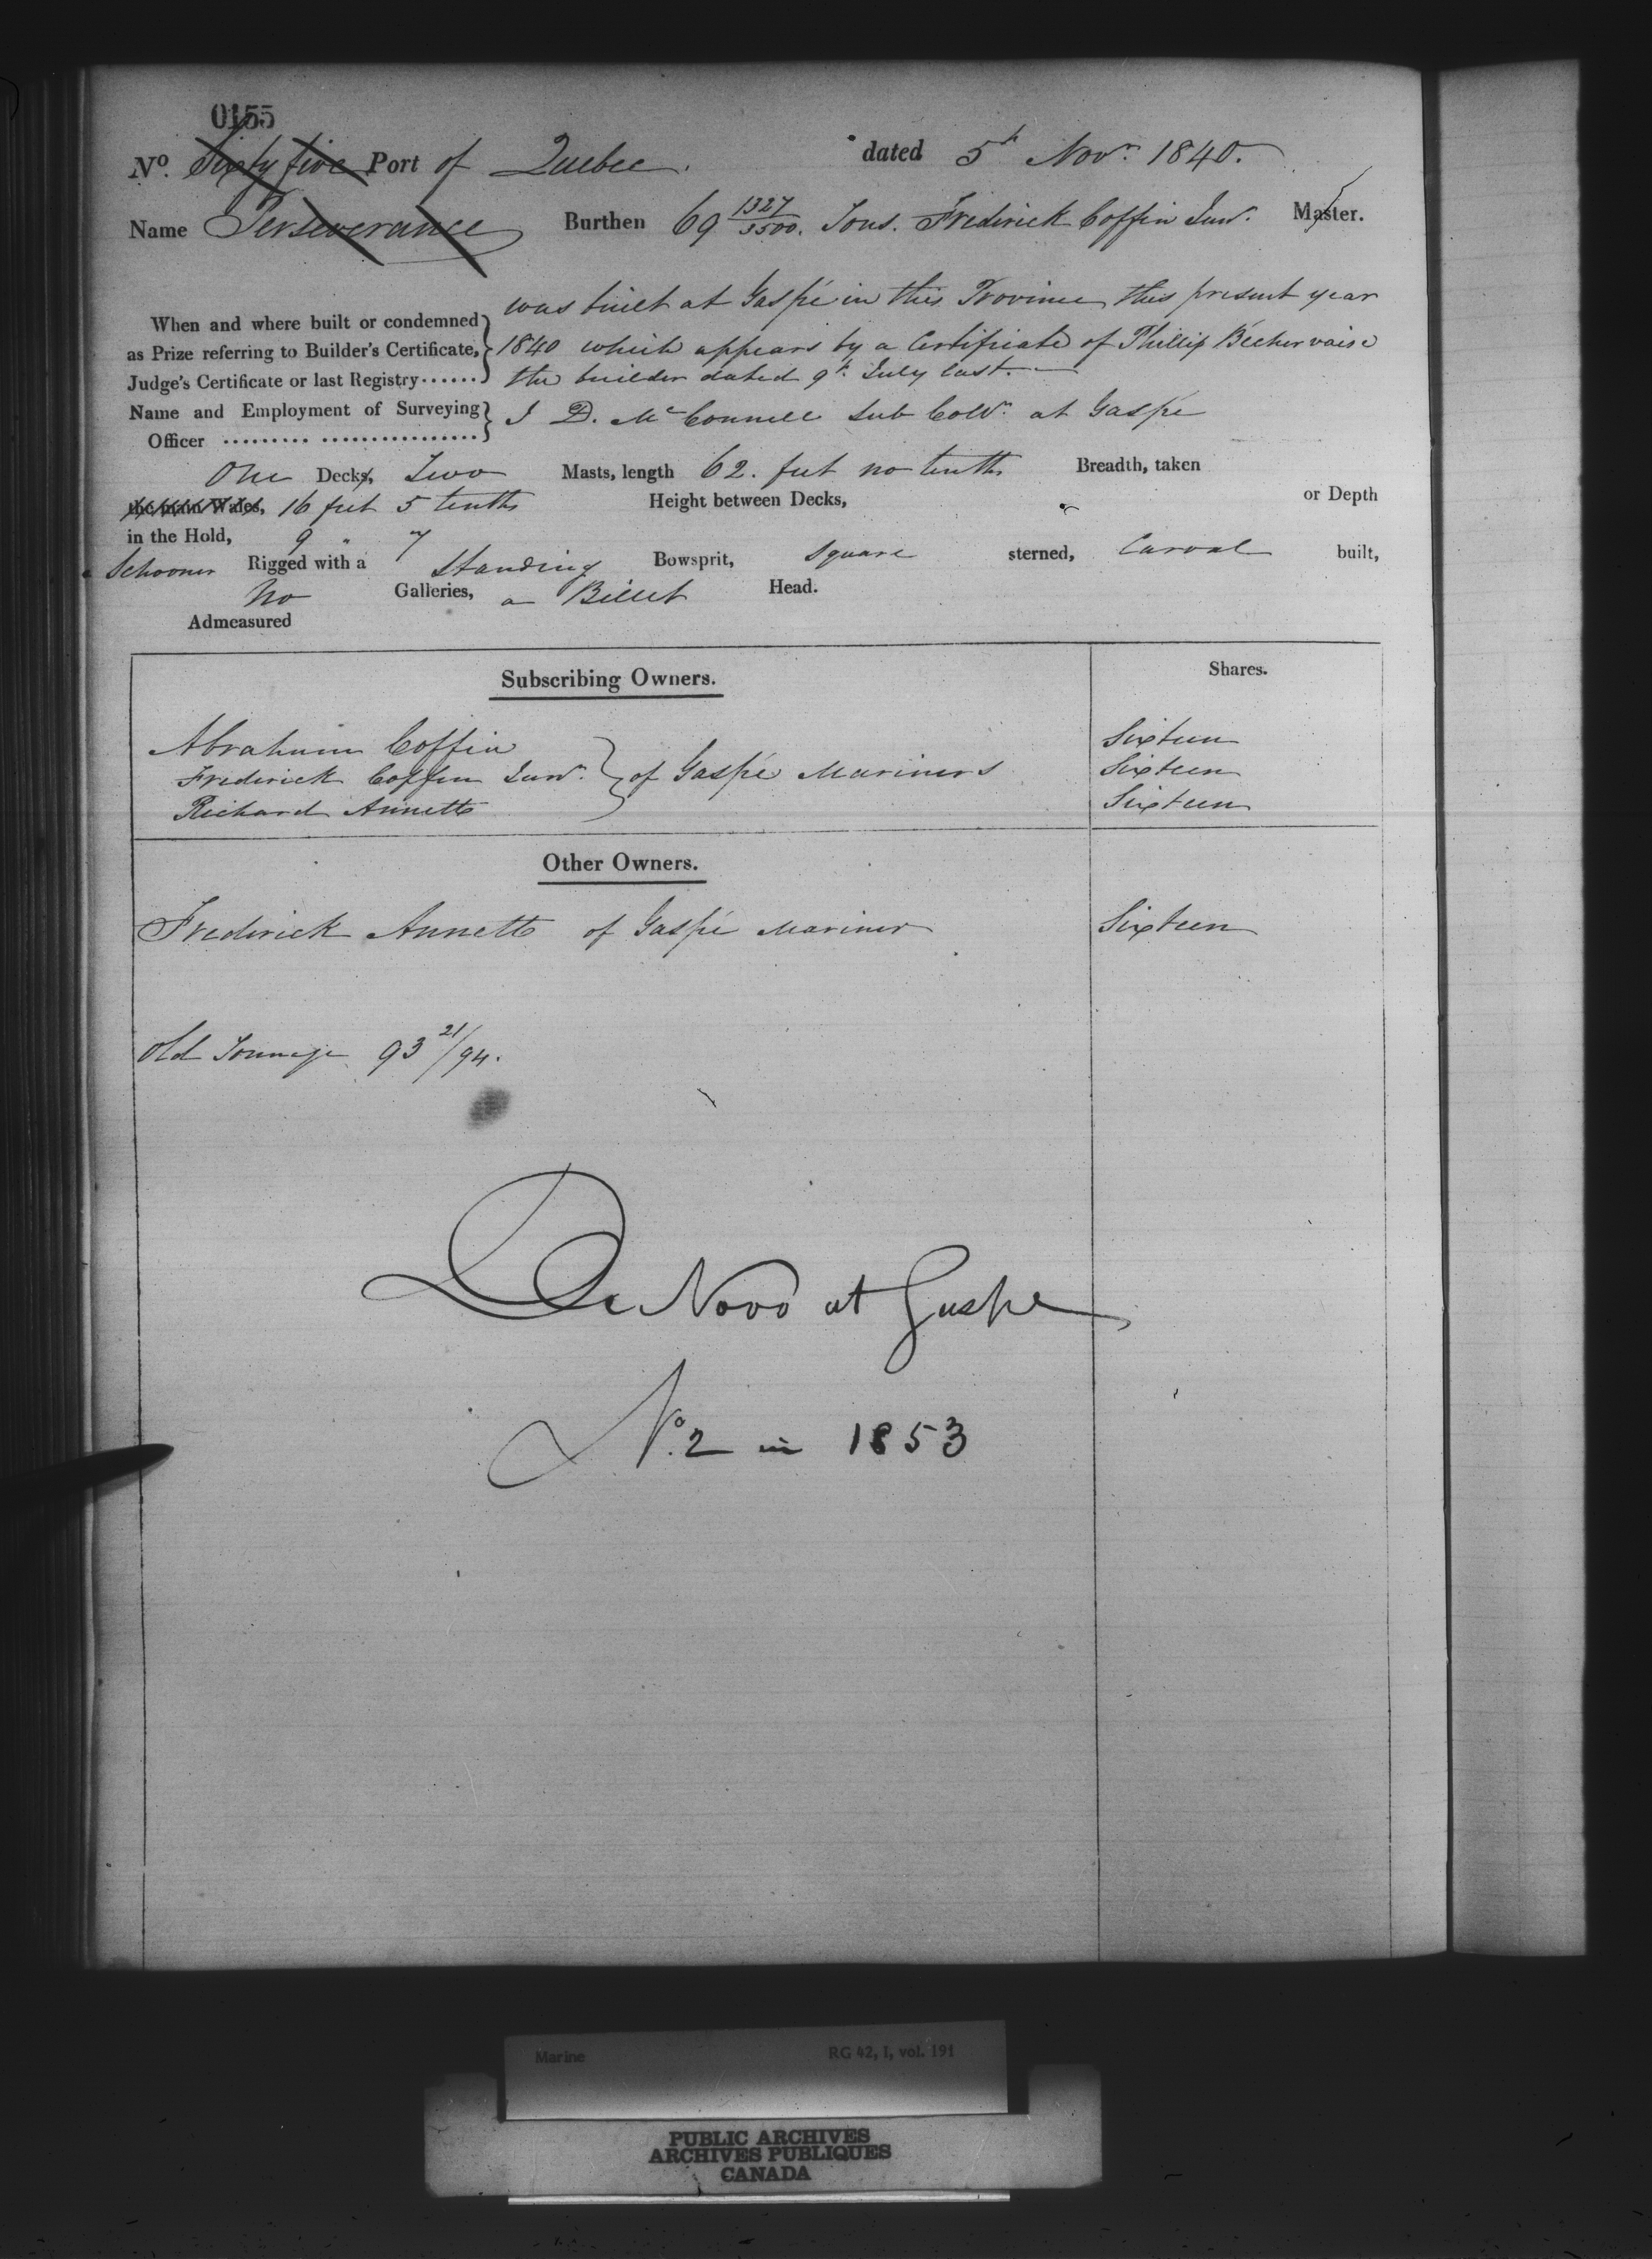 0155
No. Sixty five Port of Quebec. dated 5th Novr. 1840.
Name Perseverance Burthen 69 1327/3500. Tons. Frederick Coffin Junr. Master.
was built at Gaspé in this Province this present year
When and where built or condemned
as Prize referring to Builder's Certificate, 1840 which appears by a Certificate of Phillip Bechervaise
Judge's Certificate or last Registry...... the builder dated 9th July last.
Name and Employment of Surveying J D. McConnell Sub Collr. at Gaspé
Officer ......... ................
One Decks, Two Masts, length 62. feet no tenths Breadth, taken
the main Wales, 16 feet 5 tenths Height between Decks, or Depth
in the Hold, 9 " 7
Schooner Rigged with a Standing Bowsprit, Square sterned, Carvel built,
No Galleries, a Billet Head.
Admeasured
Subscribing Owners. Shares.
Abraham Coffin Sixteen
Frederick Coffin Junr. of Gaspé Mariners Sixteen
Richard Annett Sixteen
Other Owners.
Frederick Annett of Gaspé Mariner Sixteen
Old Tonnage 93 21/94.
De Novo at Gaspe
No. 2 in 1853
Marine RG 42, I, vol. 191
PUBLIC ARCHIVES
ARCHIVES PUBLIQUES
CANADA